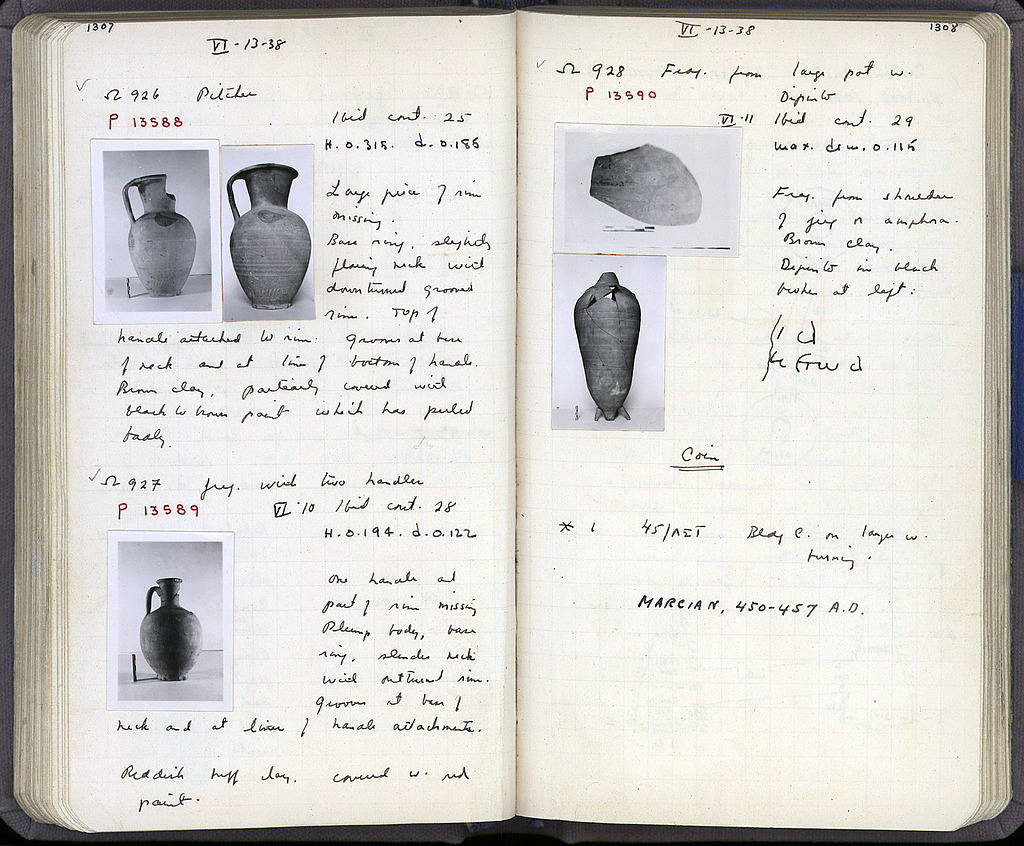 1307
VI - 13-38
Ω 926 Pitcher
P 13588
Ibid cont. 25
H. 0.315. d. 0.185
Large piece of rim
missing.
Base ring, slightly
flaring neck with
downturned grooved
rim. Top of
handle attached to rim. Grooves at base
of neck and at line of bottom of handle.
Brown clay, partially covered with
black to brown paint which has peeled
badly.
Ω 927 Jug. with two handles
P 13589
VI·10 Ibid cont. 28
H. 0.194. d. 0.122
One handle and
part of rim missing
Plump body, base
ring, slender neck
with outturned rim.
Grooves at base of
neck and at lines of handle attachments.
Reddish buff clay. covered w. red
paint.
1308
VI - 13-38
Ω 928 Frag. from large pot w.
P 13590
Dipinto
VI·11 Ibid cont. 29
max. dim. 0.115
Frag. from shoulder
of jug or amphora.
Brown clay.
Dipinto in black
broken at left:
Coin
* 1 45/ΛΣΤ Bldg C. on layer w.
burning.
MARCIAN, 450-457 A.D.